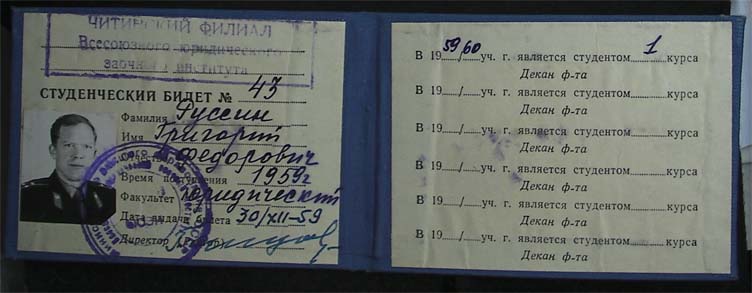 ЧИТИНСКИЙ ФИЛИАЛ
Всесоюзного юридического
заочного института
СТУДЕНЧЕСКИЙ БИЛЕТ № 43
Фамилия Руссин
Имя Григорий
Отчество Федорович
Время поступления 1959г
Факультет Юридический
Дата выдачи билета 30/XII-59
Директор
В 1959/60 уч. г. является студентом 1 курса
Декан ф-та
В 19 / уч. г. является студентом курса
Декан ф-та
В 19 / уч. г. является студентом курса
Декан ф-та
В 19 / уч. г. является студентом курса
Декан ф-та
В 19 / уч. г. является студентом курса
Декан ф-та
В 19 / уч. г. является студентом курса
Декан ф-та